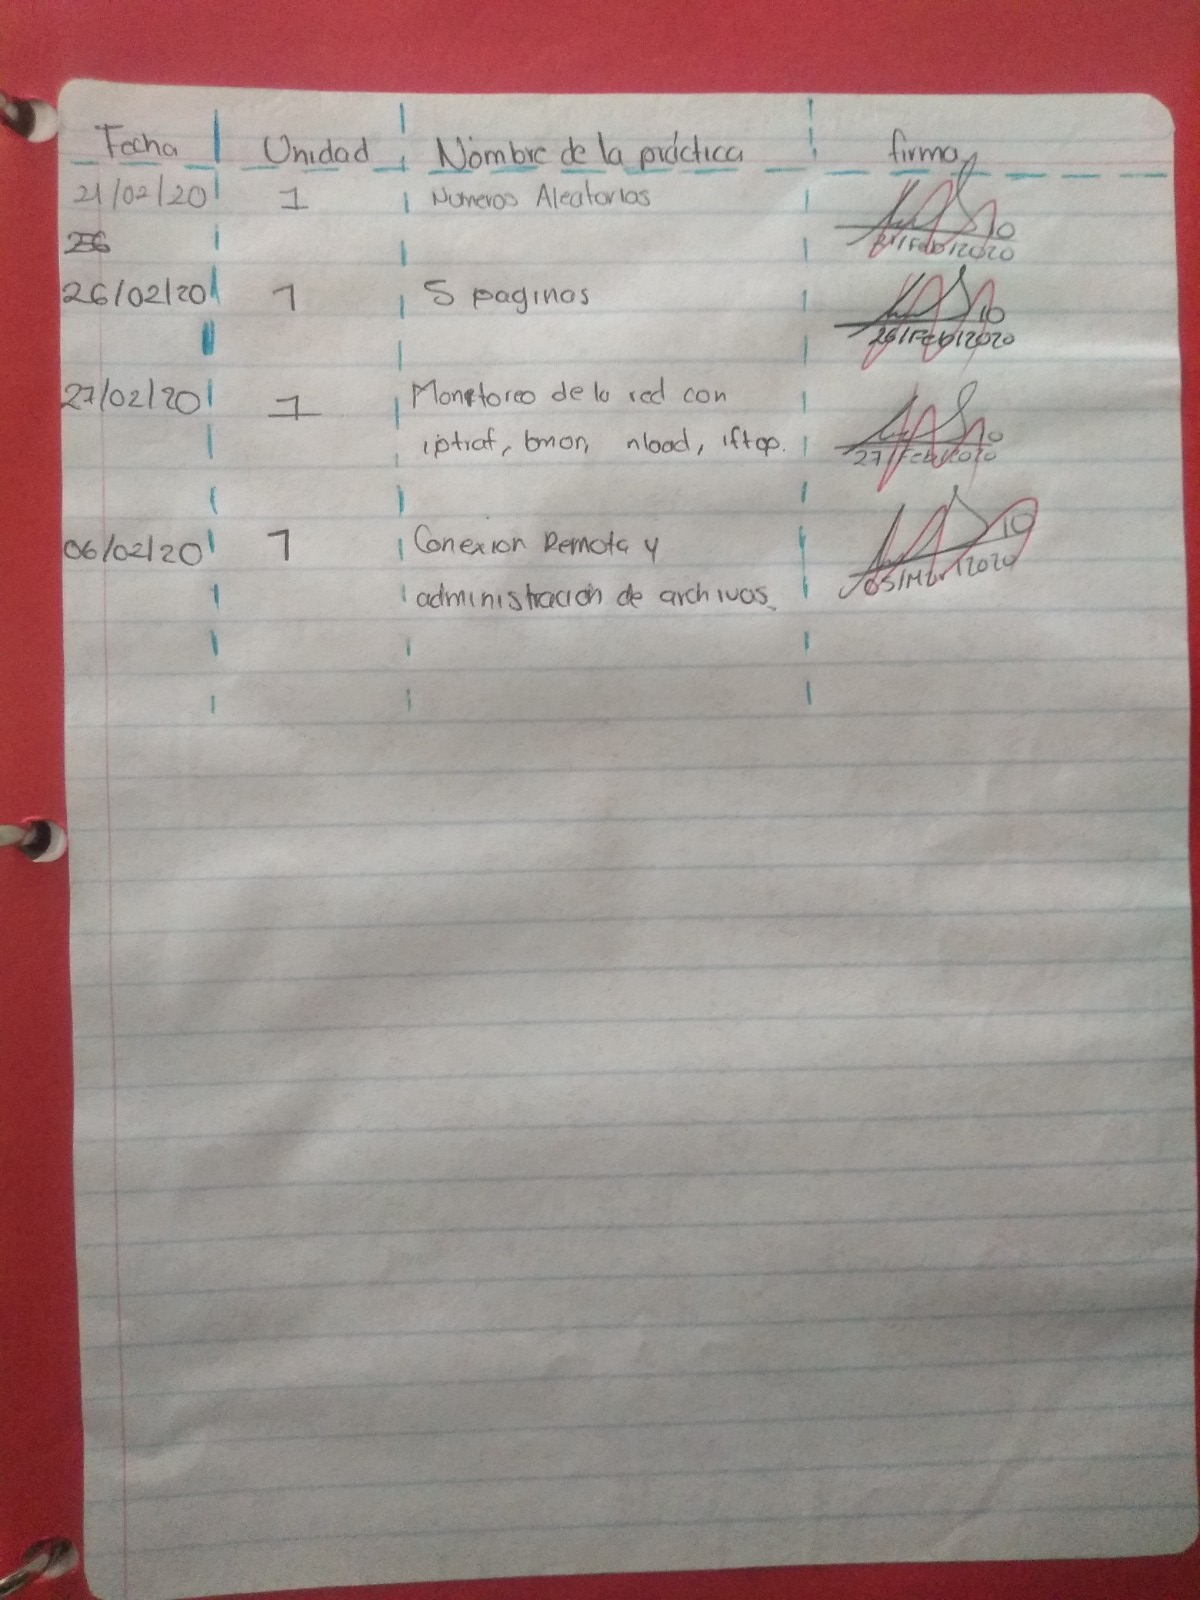 Fecha Unidad Nombre de la práctica firma
21/02/20 1 Numeros Aleatorios 10
21/Feb/2020
26/02/20 1 5 paginas 10
26/Feb/2020
27/02/20 1 Monitoreo de la red con 10
iptraf, bmon, nload, iftop. 27/Feb/2020
06/02/20 1 Conexion Remota y 10
administración de archivos. 05/Mar/2020